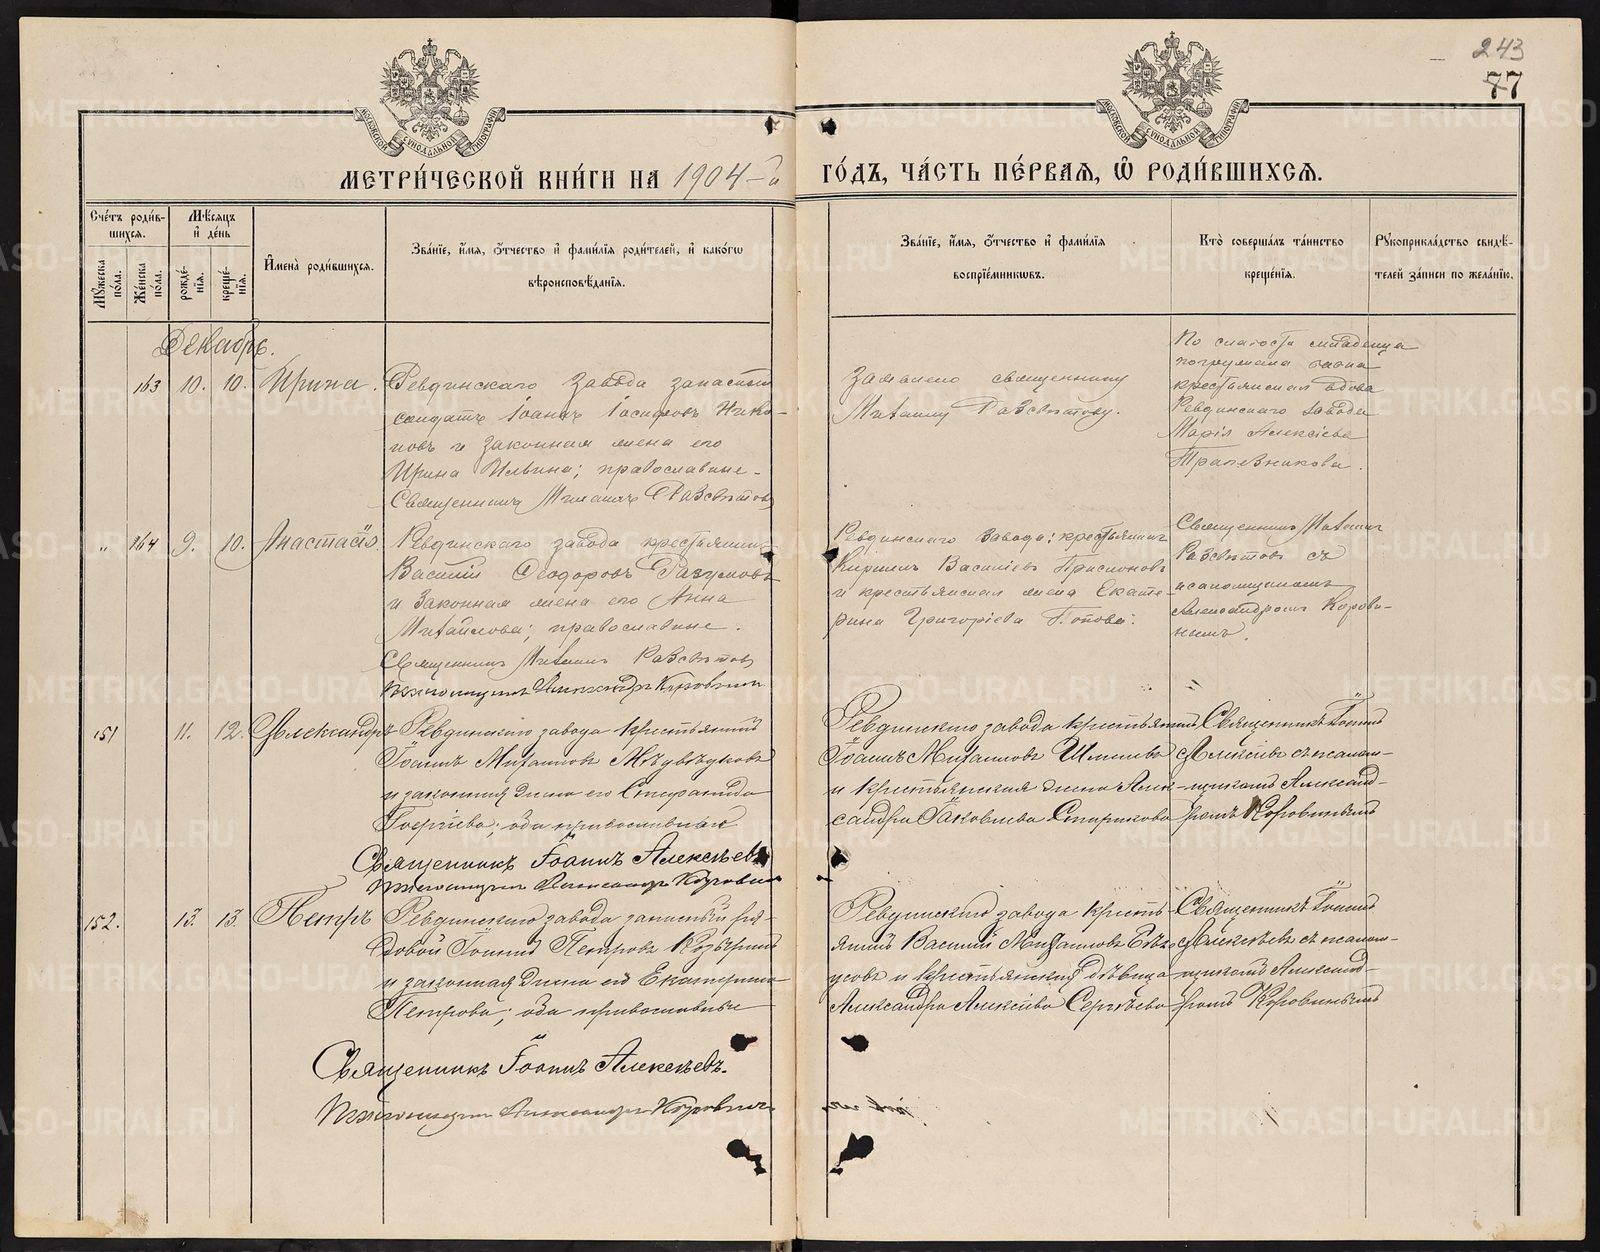 243
77
МЕТРИ́ЧЕСКОЙ КНИ́ГИ НА 1904-й
ГО́ДЪ, ЧА́СТЬ ПЕ́РВАЯ, Ѡ҆ РОДИ́ВШИХСЯ.
Сче́тъ роди́в-
шихся.
Му́жеска по́ла.
Же́нска по́ла.
Мѣ́сяцъ
и҆ де́нь
рожде́-
нїя.
креще́-
нїя.
И҆мена̀ роди́вшихся.
Зва́нїе, и҆́мя, ѻ҆́тчество и҆ фами́лїя роди́телей, и҆ како́гѡ
вѣроисповѣ́данїя.
Зва́нїе, и҆́мя, ѻ҆́тчество и҆ фами́лїя
воспрїе́мниковъ.
Кто̀ соверша́лъ та́инство
креще́нїя.
Рꙋкоприкла́дство свидѣ́-
телей за́писи по жела́нїю.
Декабрь.
163 10. 10. Ирина.
Ревдинскаго завода запасный
солдатъ Іоаннъ Іосифовъ Нико-
новъ и законная жена его
Ирина Ильина; православные.
Священникъ Михаилъ Разсвѣтовъ
Замолено священнику
Михаилу Разсвѣтову.
По слабости младенца
погружена
крестьянская вдова
Ревдинскаго завода
Марія Алексіева
Трапезникова.
" 164 9. 10. Анастасія
Ревдинскаго завода крестьянинъ
Василій Ѳеодоровъ Разумовъ
и законная жена его Анна
Михайлова; православные.
Священникъ Михаилъ Разсвѣтовъ
Псаломщикъ Александръ Коровинъ
Ревдинскаго завода: крестьянинъ
Кириллъ Василіевъ
и крестьянская жена Екате-
рина Григоріева Попова.
Священникъ Михаилъ
Разсвѣтовъ съ
псаломщикомъ
Александромъ Корови-
нымъ.
151 11. 12. Александръ
Ревдинскаго завода крестьянинъ
Іоаннъ Михаиловъ
и законная жена его Стефанида
Георгіева; оба православные
Священникъ Іоаннъ Алексѣевъ
Псаломщикъ Александръ Коровинъ
Ревдинскаго завода крестьянинъ
Іоаннъ Михаиловъ
и крестьянская жена Алек-
сандра Іаковлева Старикова
Священникъ Іоаннъ
Алексѣевъ съ псалом-
щикомъ Александ-
ромъ Коровинымъ
152. 13. 13. Петръ
Ревдинскаго завода запасный ря-
довой Іоаннъ Петровъ Козыринъ
и законная жена его Екатерина
Петрова; оба православные
Священникъ Іоаннъ Алексѣевъ.
Псаломщикъ Александръ Коровинъ
Ревдинскаго завода кресть-
янинъ Василій Михаиловъ
и крестьянская дѣвица
Александра Алексіева Сергѣева
Священникъ Іоаннъ
Алексѣевъ съ псалом-
щикомъ Александ-
ромъ Коровинымъ
METRIKI.GASO-URAL.RU